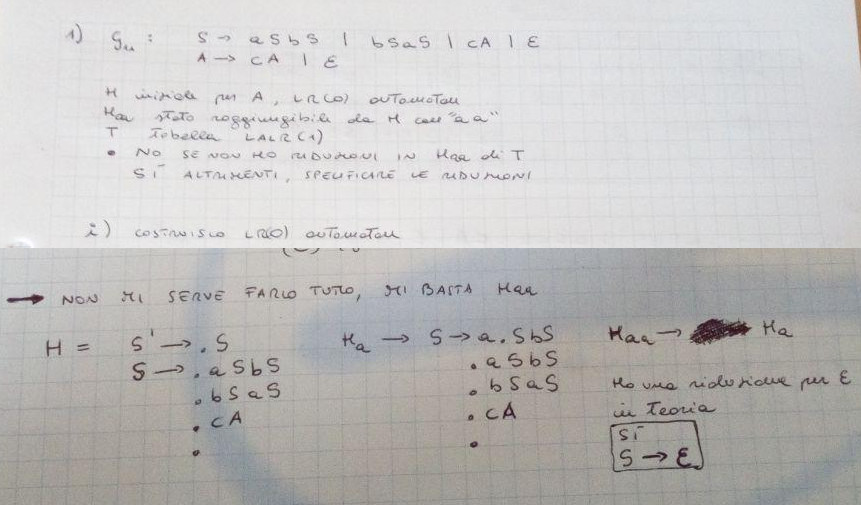 1) Gu : S → aSbS | bSaS | cA | ε
A → cA | ε
H iniziale per A, LR(0) automaton
Haa stato raggiungibile da H con "aa"
T tabella LALR(1)
• NO SE NON HO RIDUZIONI IN Haa di T
SÌ ALTRIMENTI, SPECIFICARE LE RIDUZIONI
i) COSTRUISCO LR(0) automaton
→ NON MI SERVE FARLO TUTTO, MI BASTA Haa
H = S' → .S
S → .aSbS
.bSaS
.cA
.
Ha → S → a.SbS
.aSbS
.bSaS
.cA
.
Haa → Ha
Ho una riduzione per ε
in teoria
SÌ
S → ε